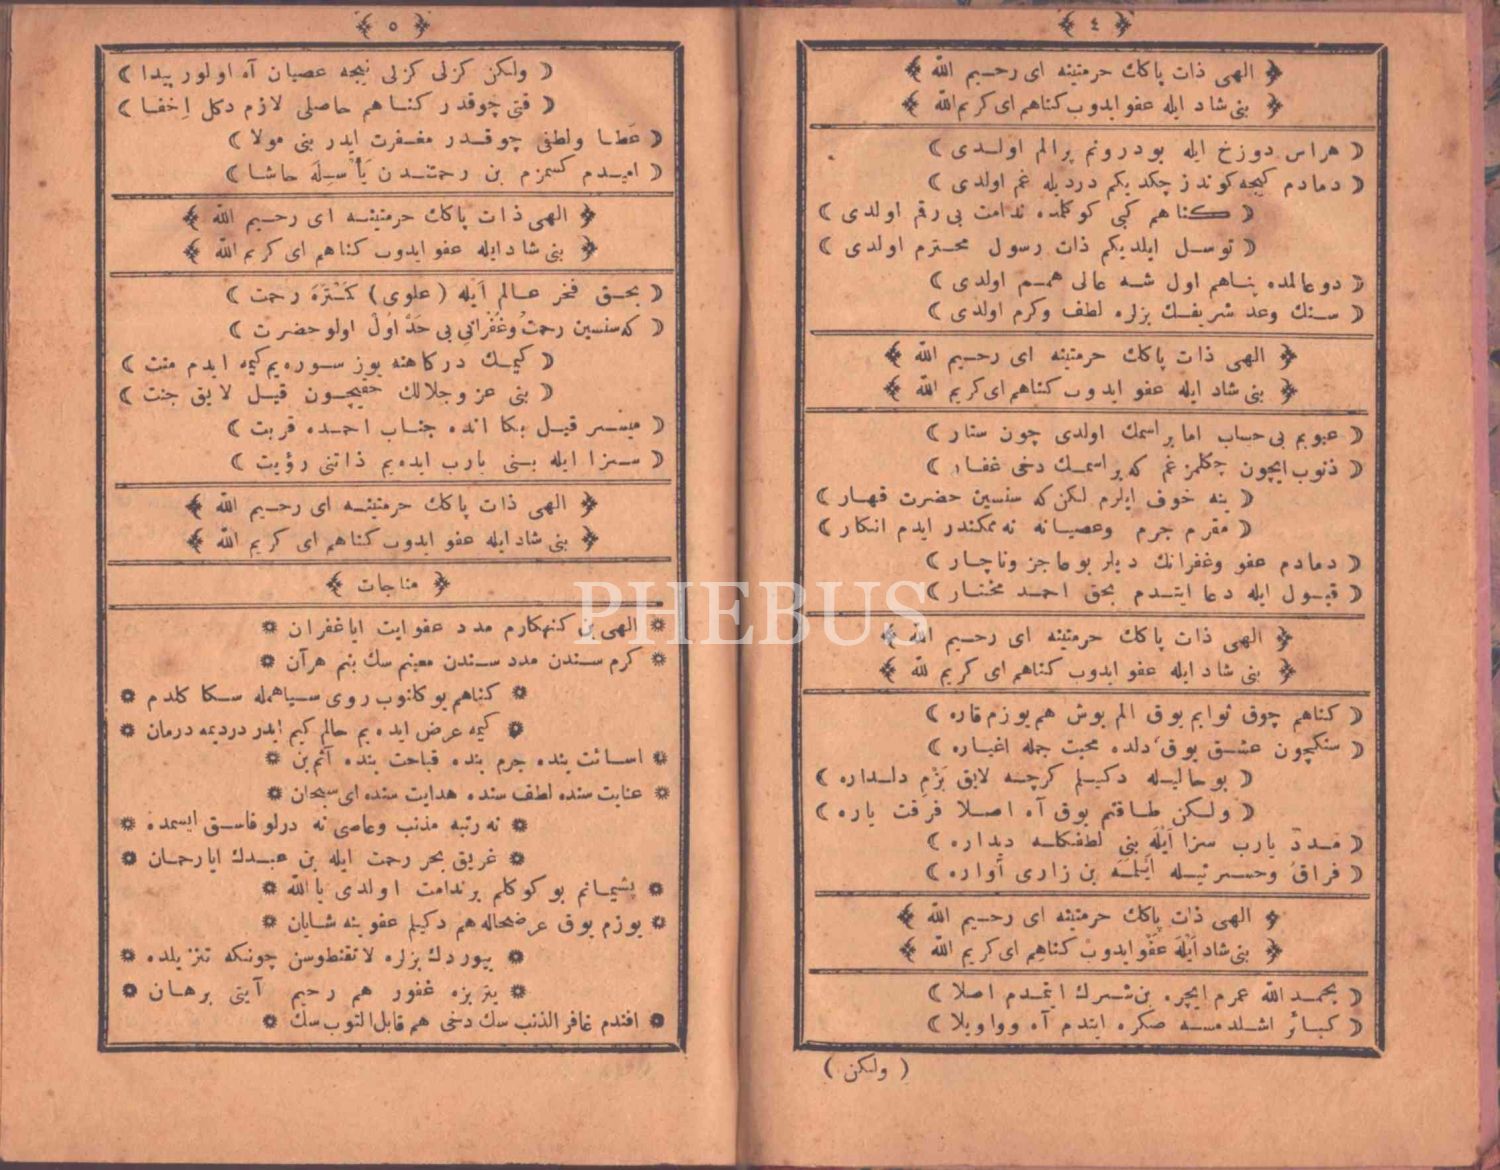 ﴿ ٤ ﴾
﴿ الهی ذات پاكك حرمتینه ای رحیم الله ﴾
﴿ بنی شاد ایله عفو ایدوب كناهم ای كریم الله ﴾
( هراس دوزخ ایله بو درونم پر الم اولدی )
( دمادم كیجه كوندز چكدیكم دردیله غم اولدی )
( كناهم كبی كوكلمده ندامت بی رقم اولدی )
( توسل ایلدیكم ذات رسول محترم اولدی )
( دو عالمده پناهم اول شه عالی همم اولدی )
( سنك وعد شریفك بزلره لطف وكرم اولدی )
﴿ الهی ذات پاكك حرمتینه ای رحیم الله ﴾
﴿ بنی شاد ایله عفو ایدوب كناهم ای كریم الله ﴾
( عیوبم بی حساب اما بر اسمك اولدی چون ستار )
( ذنوب ایچون چكلمز غم كه بر اسمك دخی غفار )
( ینه خوف ایلرم لكن كه سنسین حضرت قهار )
( مقرم جرم وعصیانه نه ممكندر ایدم انكار )
( دمادم عفو وغفرانك دیلر بو عاجز وناچار )
( قبول ایله دعا ایتدم بحق احمد مختار )
﴿ الهی ذات پاكك حرمتینه ای رحیم الله ﴾
﴿ بنی شاد ایله عفو ایدوب كناهم ای كریم لله ﴾
( كناهم چوق ثوابم یوق الم بوش هم یوزم قاره )
( سنكیچون عشق یوق دلده محبت جمله اغیاره )
( بو حالیله دكیلم كرچه لایق بزم دلداره )
( ولكن طاقتم یوق آه اصلا فرقت یاره )
( مدد یارب سزا ایله بنی لطفكله دیداره )
( فراق وحسرتیله ایلمه بن زاری آواره )
﴿ الهی ذات پاكك حرمتینه ای رحیم الله ﴾
﴿ بنی شاد ایله عفو ایدوب كناهم ای كریم الله ﴾
( بحمد الله عمرم ایچره بن شرك ایتمدم اصلا )
( كبائر اشلدمسه صكره ایتدم آه وواویلا )
( ولكن )
﴿ ٥ ﴾
( ولكن كزلی كزلی نیجه عصیان آه اولور پیدا )
( قتی چوقدر كناهم حاصلی لازم دكل اخفا )
( عطا ولطفی چوقدر مغفرت ایدر بنی مولا )
( امیدم كسمزم بن رحمتدن یأسله حاشا )
﴿ الهی ذات پاكك حرمتینه ای رحیم الله ﴾
﴿ بنی شاد ایله عفو ایدوب كناهم ای كریم الله ﴾
( بحق فخر عالم ایله ( علوی ) كمتره رحمت )
( كه سنسین رحمت وغفرانی بی حد اول اولو حضرت )
( كیمك دركاهنه یوز سوره یم كیمه ایدم منت )
( بنی عز وجلالك حقیچون قیل لایق جنت )
( میسر قیل بكا انده جناب احمده قربت )
( سزا ایله بنی یارب ایده یم ذاتنی رؤیت )
﴿ الهی ذات پاكك حرمتینه ای رحیم الله ﴾
﴿ بنی شاد ایله عفو ایدوب كناهم ای كریم الله ﴾
﴿ مناجات ﴾
الهی بن كنهكارم مدد عفو ایت ایا غفران
كرم سندن مدد سندن معینم سك بنم هر آن
كناهم یوكلنوب روی سیاهمله سكا كلدم
كیمه عرض ایده یم حالم كیم ایدر دردیمه درمان
اسائت بنده جرم بنده قباحت بنده آثم بن
عنایت سنده لطف سنده هدایت سنده ای سبحان
نه رتبه مذنب وعاصی نه درلو فاسق ایسمده
غریق بحر رحمت ایله بن عبدك ایا رحمان
پشیمانم بو كوكلم پر ندامت اولدی یا الله
یوزم یوق عرضحاله هم دكیلم عفوینه شایان
بیوردك بزلره لاتقنطوسن چونكه تنزیلده
یتر بزه غفور هم رحیم آیتی برهان
افندم غافر الذنب سك دخی هم قابل التوب سك
PHEBUS